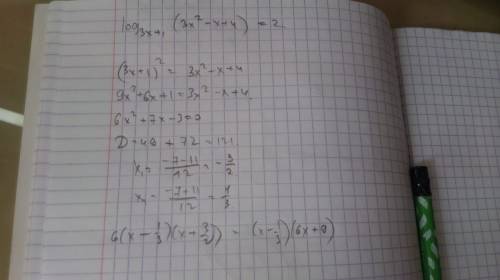 log₃ₓ₊₁ (3x² - x + 4) = 2
(3x + 1)² = 3x² - x + 4
9x² + 6x + 1 = 3x² - x + 4
6x² + 7x - 3 = 0
D = 49 + 72 = 121
x₁ = (-7-11)/12 = -3/2
x₂ = (-7+11)/12 = 1/3
6(x - 1/3)(x + 3/2)) = (x - 1/3)(6x + 9)